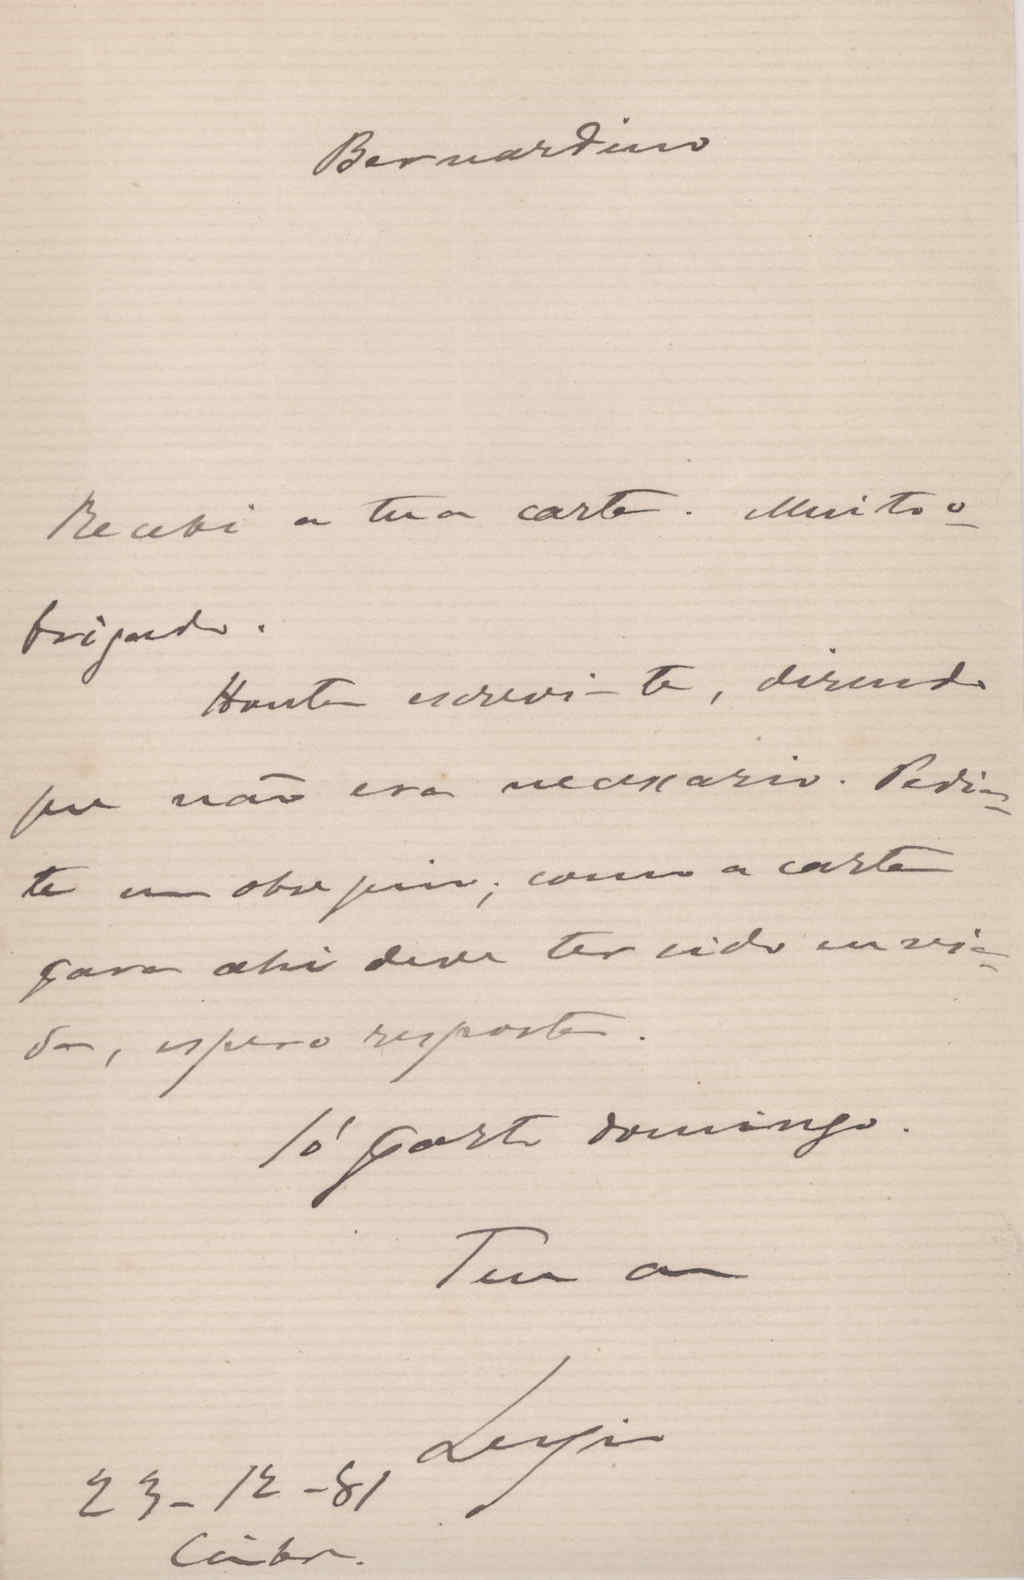 Bernardino
Recebi a tua carta. Muito o-
brigado.
Hontem escrevi-te, dizendo
que não era necessario. Pedi-
te um obsequio; como a carta
para ahi deve ter sido envia-
da, espero resposta.
Só parto domingo.
Teu am
23-12-81
Coimbra.